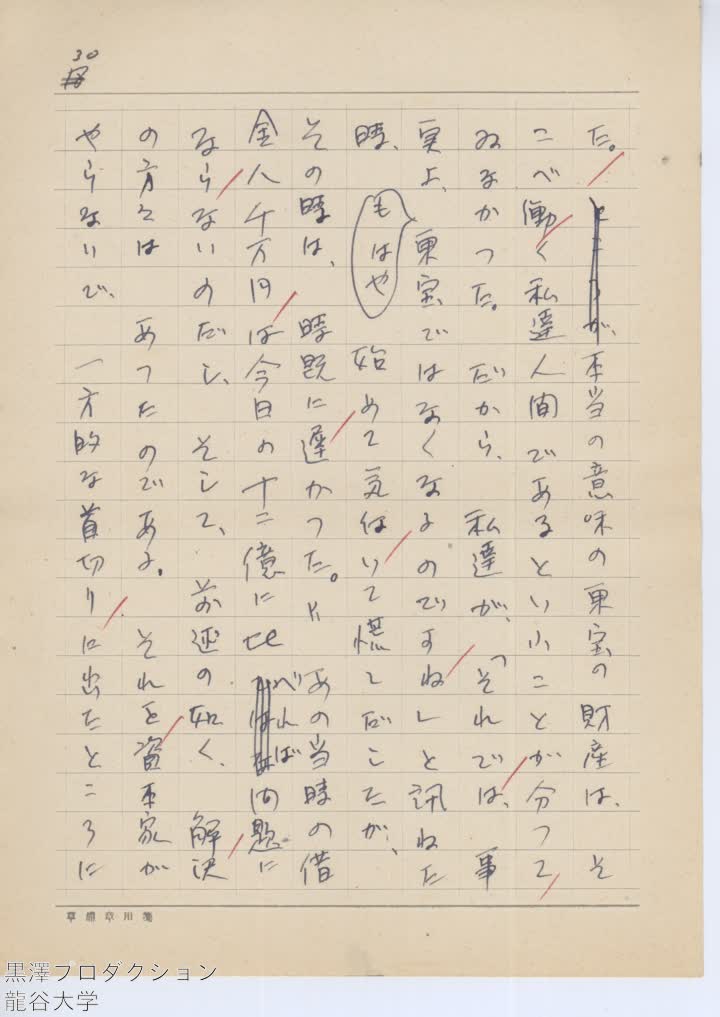 30
た。ところが、本当の意味の東宝の財産は、そ
こべ働く私達人間であるといふことが分つて
ゐなかつた。だから、私達が、「それでは、事
実上、東宝ではなくなるのですね」と訊ねた
時、もはや 始めて気付いて慌てだしたが、
その時は、時既に遅かつた。あの当時の借
金八千万円は今日の十二億に比べれば問題に
ならないのだし、そして、前述の如く、解決
の方法は あつたのである。それを資本家が
やらないで、一方的な首切りに出たところに
黒澤プロダクション
龍谷大学